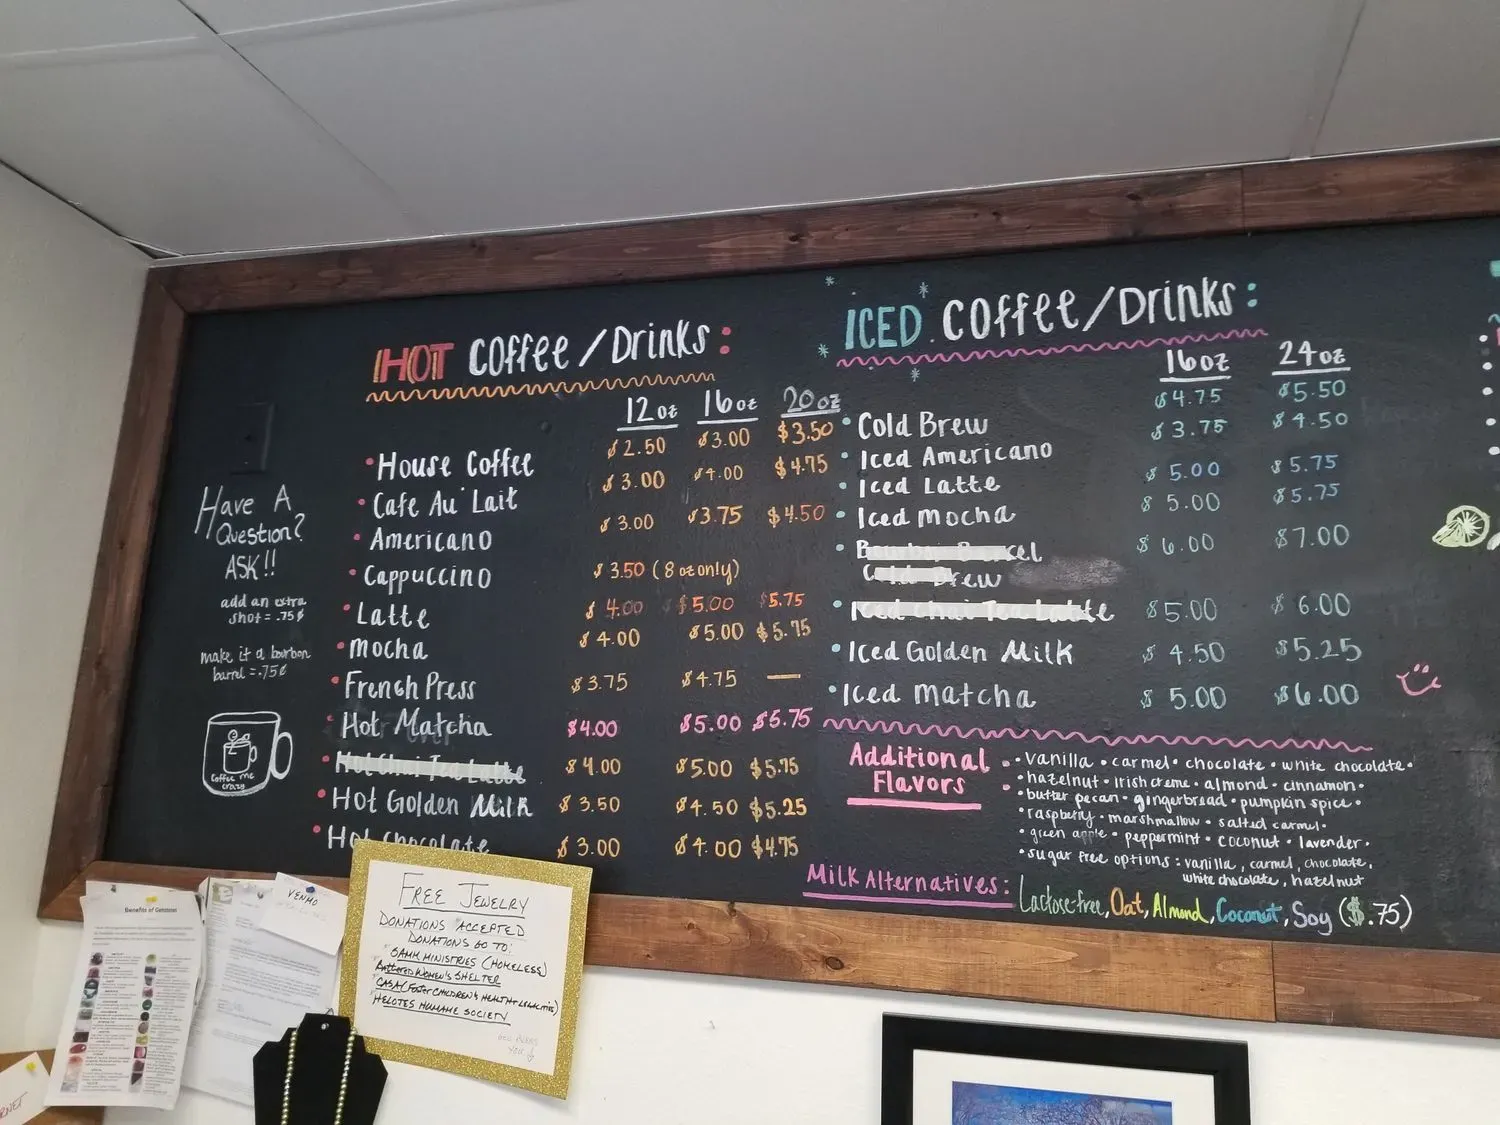 HOT Coffee/Drinks:
12oz 16oz 20oz
• House Coffee $2.50 $3.00 $3.50
• Cafe Au Lait $3.00 $4.00 $4.75
• Americano $3.00 $3.75 $4.50
• Cappuccino $3.50 (8 oz only)
• Latte $4.00 $5.00 $5.75
• Mocha $4.00 $5.00 $5.75
• French Press $3.75 $4.75 —
• Hot Matcha $4.00 $5.00 $5.75
• Hot Chai Tea Latte $4.00 $5.00 $5.75
• Hot Golden Milk $3.50 $4.50 $5.25
• Hot Chocolate $3.00 $4.00 $4.75
Have A
Question?
ASK!!
add an extra
shot = .75¢
make it a bourbon
barrel = .75¢
Coffee me
crazy
ICED Coffee/Drinks:
16oz 24oz
• Cold Brew $4.75 $5.50
• Iced Americano $3.75 $4.50
• Iced Latte $5.00 $5.75
• Iced Mocha $5.00 $5.75
• Bourbon Barrel
Cold Brew $6.00 $7.00
• Iced Chai Tea Latte $5.00 $6.00
• Iced Golden Milk $4.50 $5.25
• Iced Matcha $5.00 $6.00
Additional
Flavors
• vanilla • carmel • chocolate • white chocolate •
• hazelnut • irish creme • almond • cinnamon •
• butter pecan • gingerbread • pumpkin spice •
• raspberry • marshmallow • salted carmel •
• green apple • peppermint • coconut • lavender •
• sugar free options : vanilla, carmel, chocolate,
white chocolate, hazelnut
Milk Alternatives: Lactose-free, Oat, Almond, Coconut, Soy ($.75)
Benefits of Gemstones
VENMO
FREE JEWELRY
DONATIONS ACCEPTED
DONATIONS GO TO:
SAMM MINISTRIES (HOMELESS)
Battered WOMEN'S SHELTER
CASA (FOSTER CHILDREN'S HEALTH + LEGALITIES)
HELOTES HUMANE SOCIETY
YOU